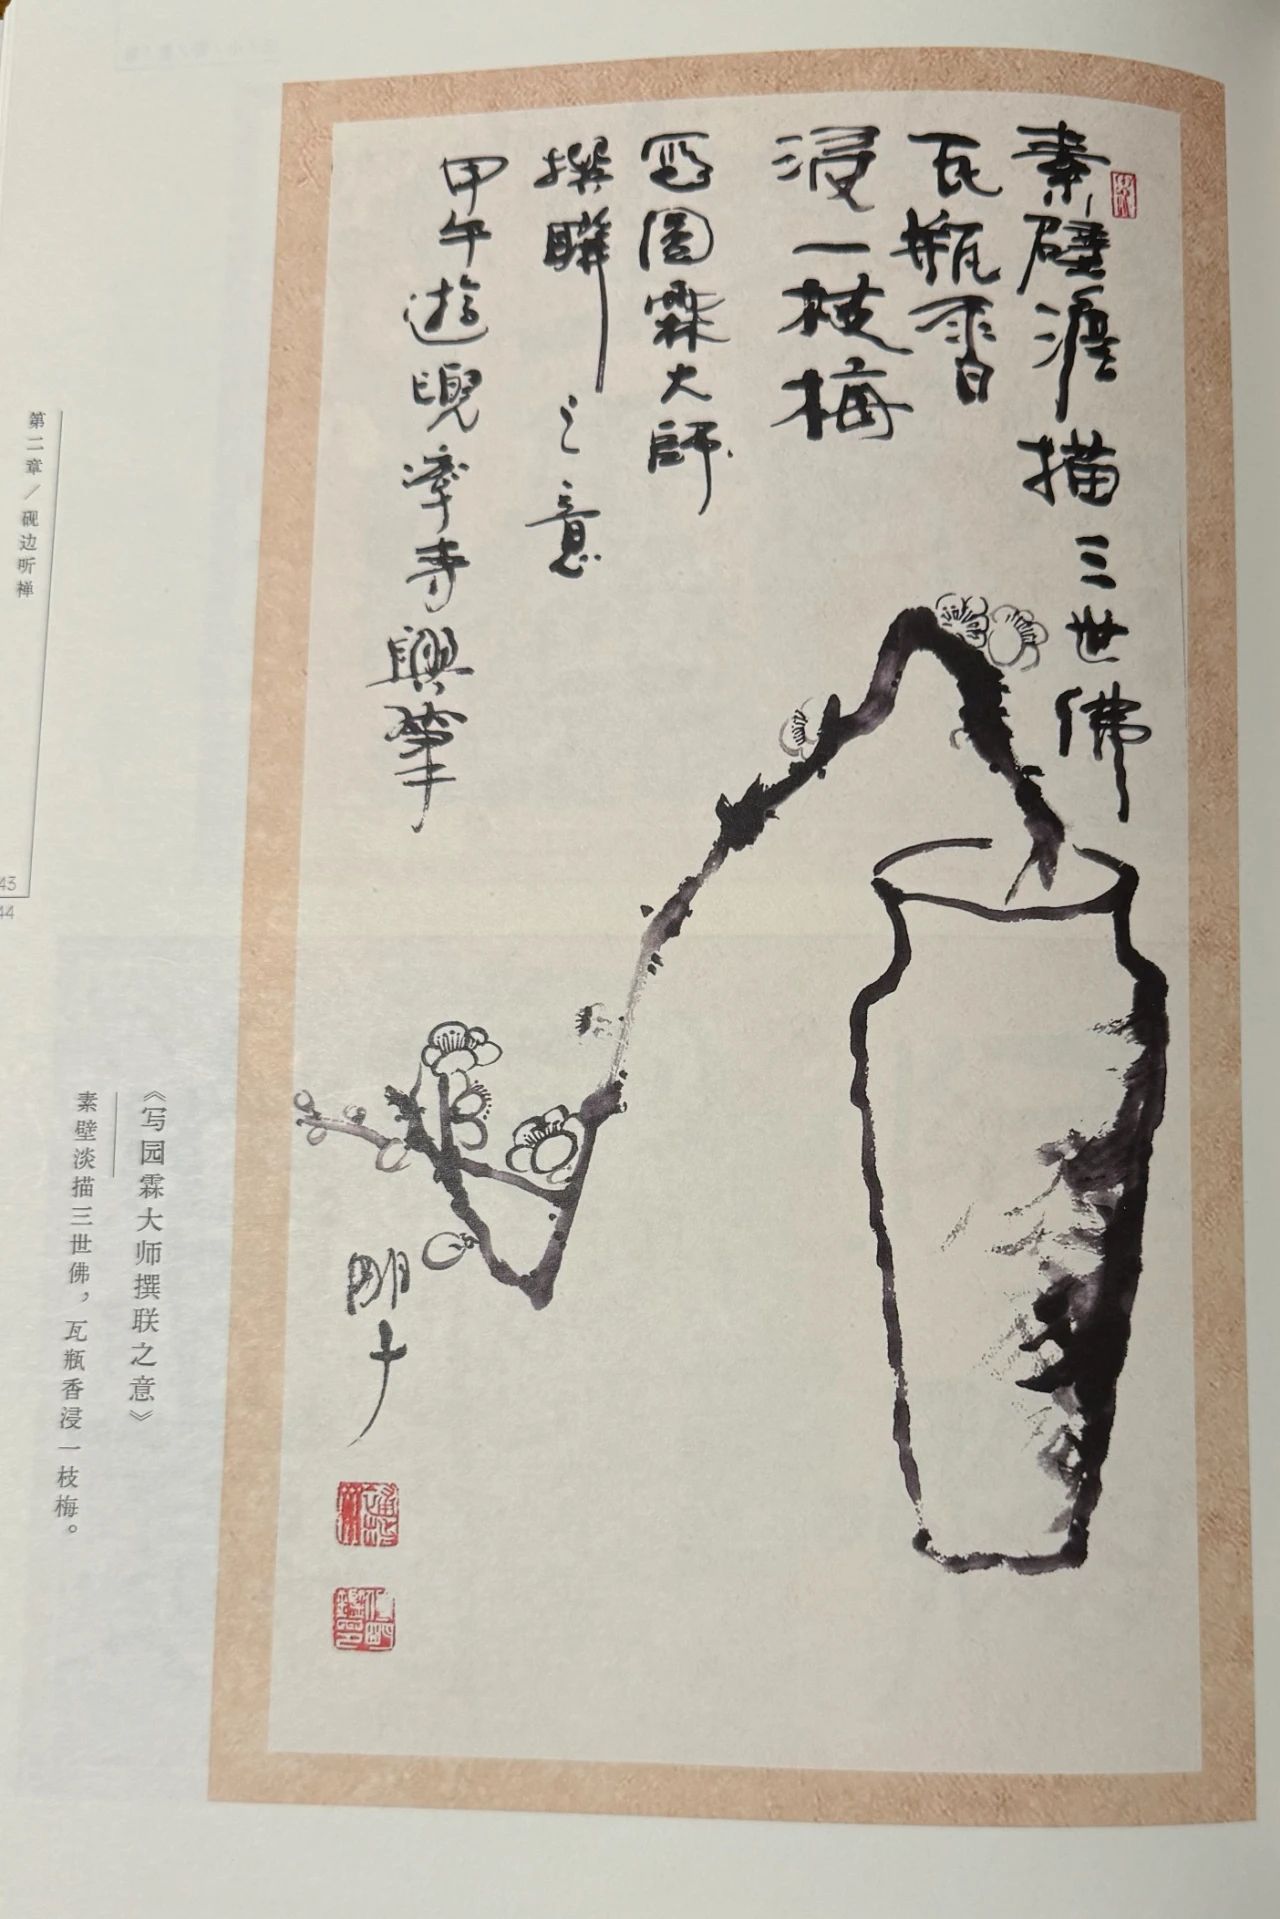 素壁澹描三世佛
瓦瓶香
浸一枝梅
寫園霖大師
撰聯之意
甲午遊兜率寺興筆
剛十
《写园霖大师撰联之意》
素壁淡描三世佛，瓦瓶香浸一枝梅。
第二章／砚边听禅
43
44